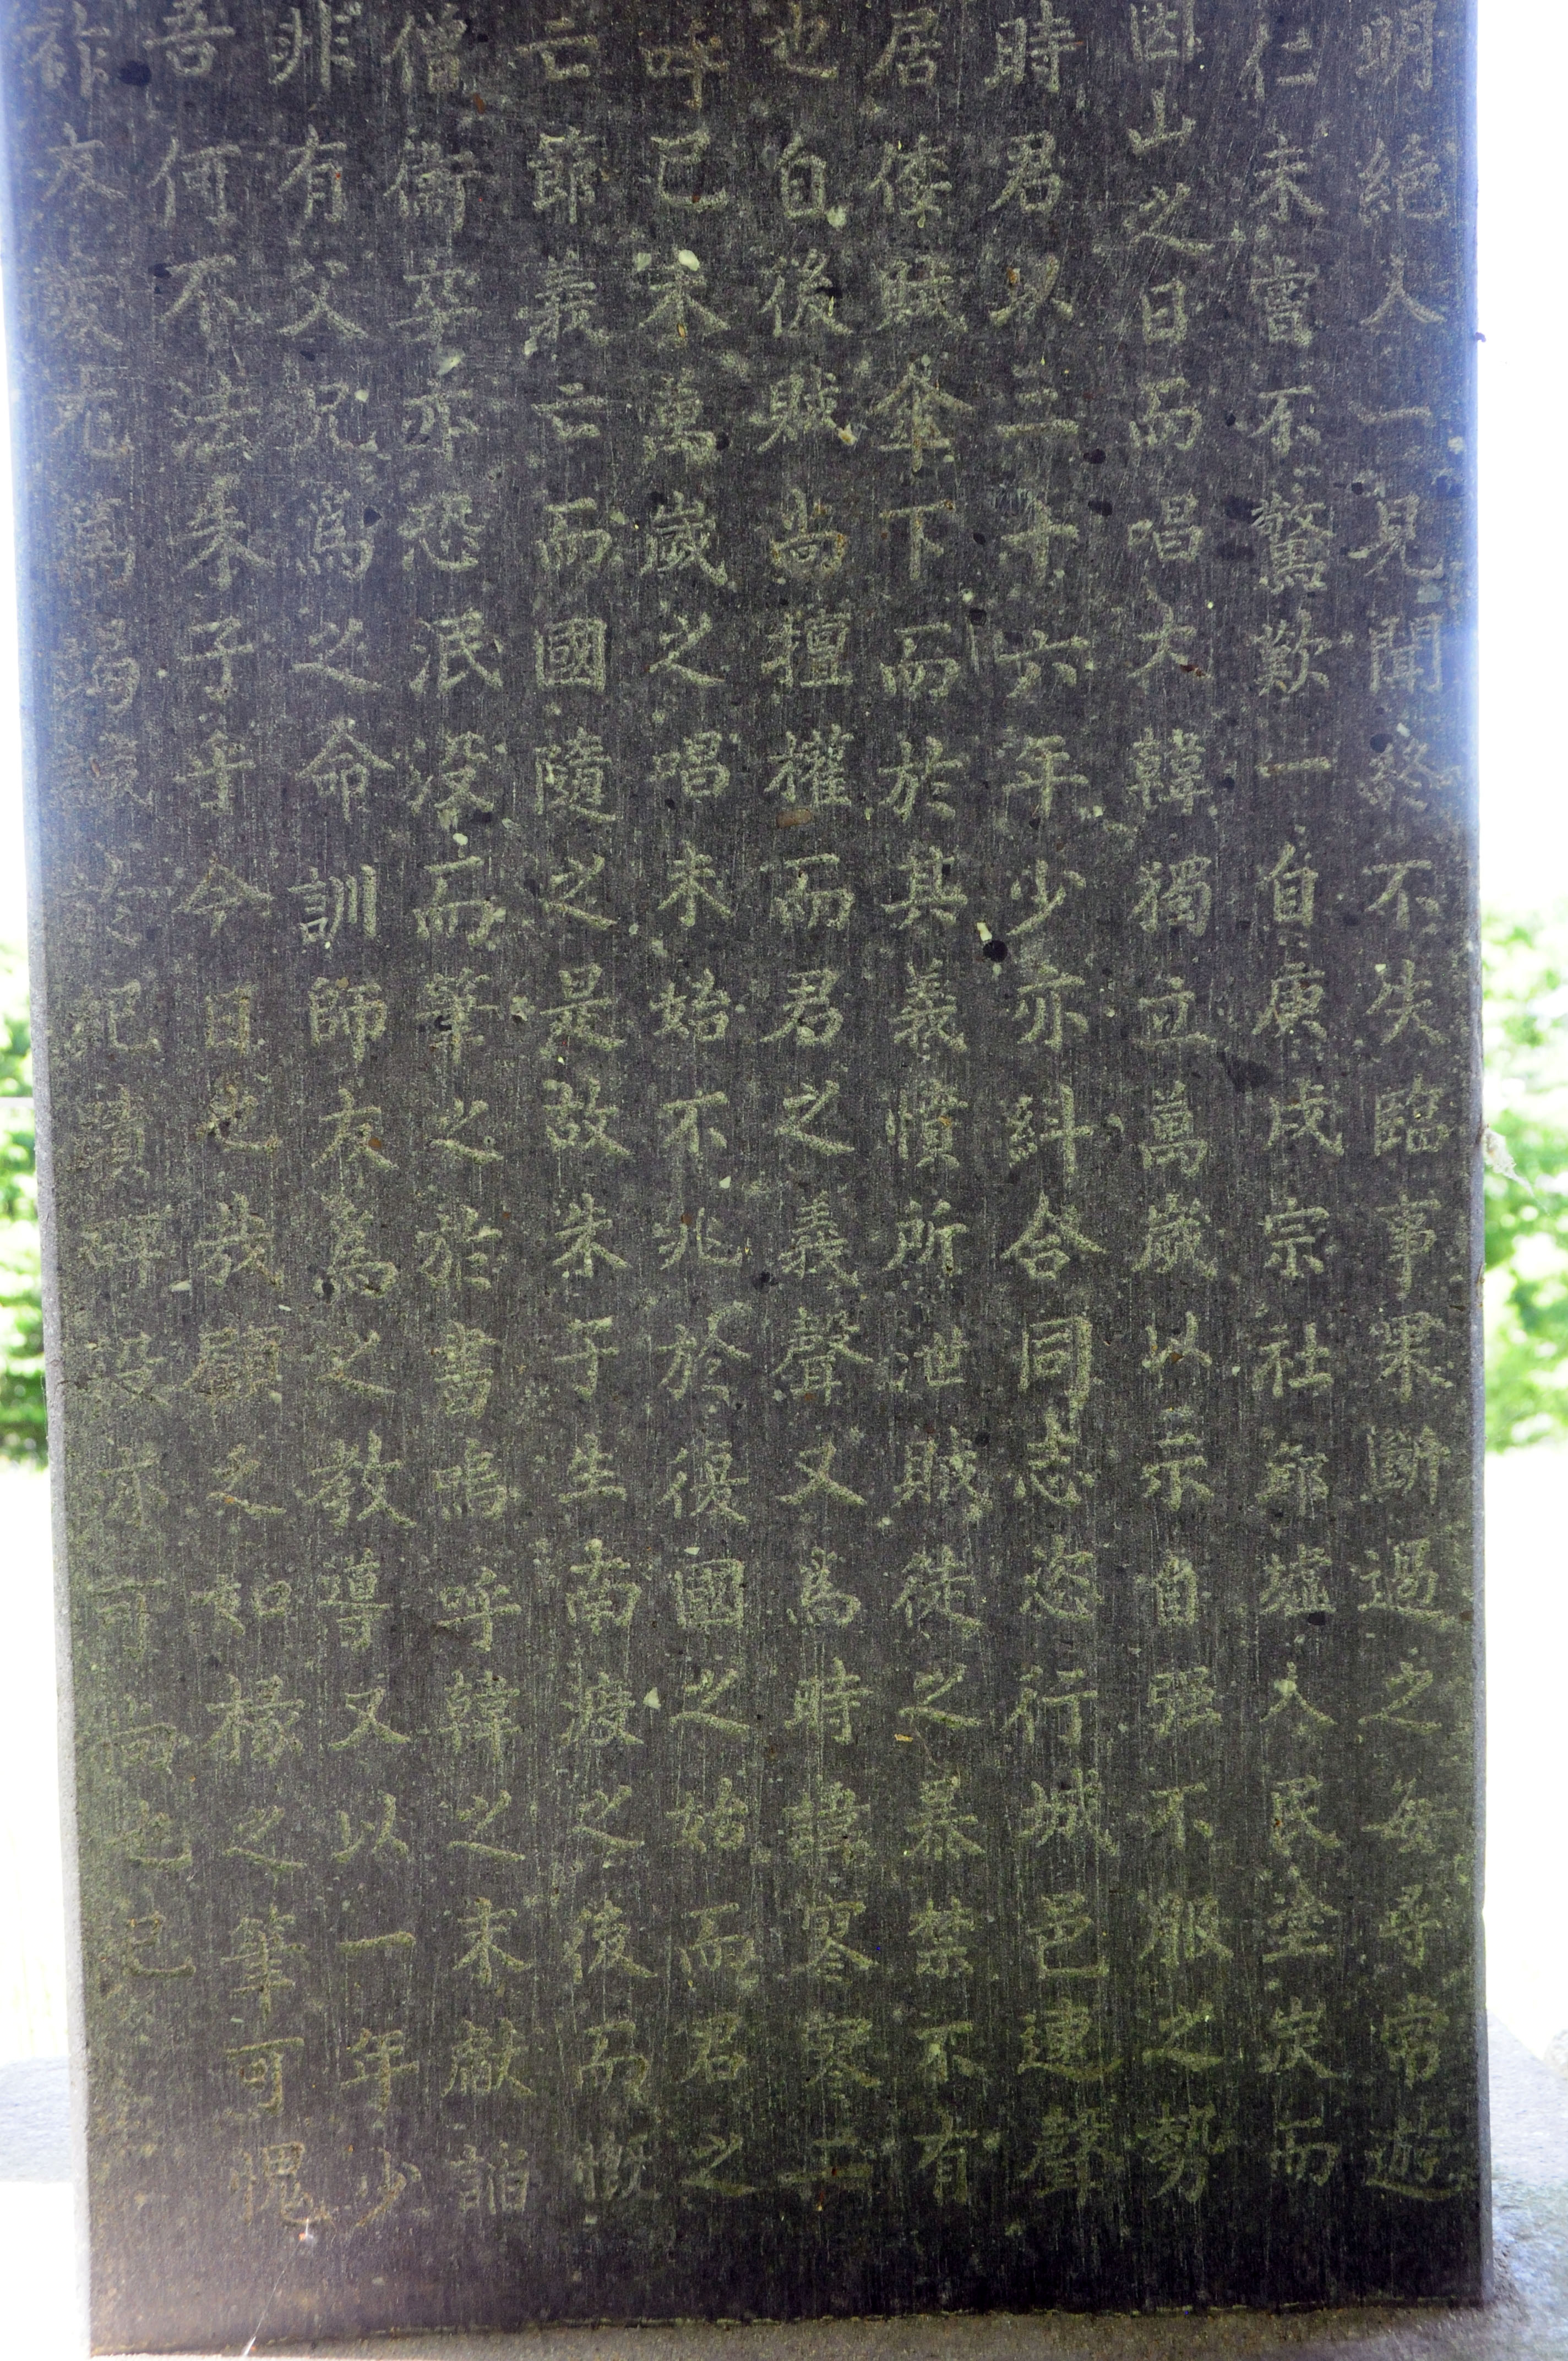 明絶人一見聞終不失臨事果斷過之每乎常遊
仁未嘗不驚歎一自庚戌宗社邱墟人民塗炭而
因山之日而唱大韓獨立萬歲以示自强不服之勢
時君以二十六年少亦糾合同志恣行城邑連聲
居倭賊傘下而於其義憤所泄賊徒之暴禁不有
也自後賊尚擅權而君之義聲又爲時諱寥寥二
呼己未萬歲之唱未始不兆於復國之始而君之
亡節義亡而國隨之是故朱子生南渡之後而慨
僧衞卒亦恐泯沒而筆之於書嗚呼韓之末猷詒
非有父兄爲之命訓師友爲之教導又以一年少
吾何不法朱子乎今日也哉顧之如椽之筆可愧
於 碑 可 也已